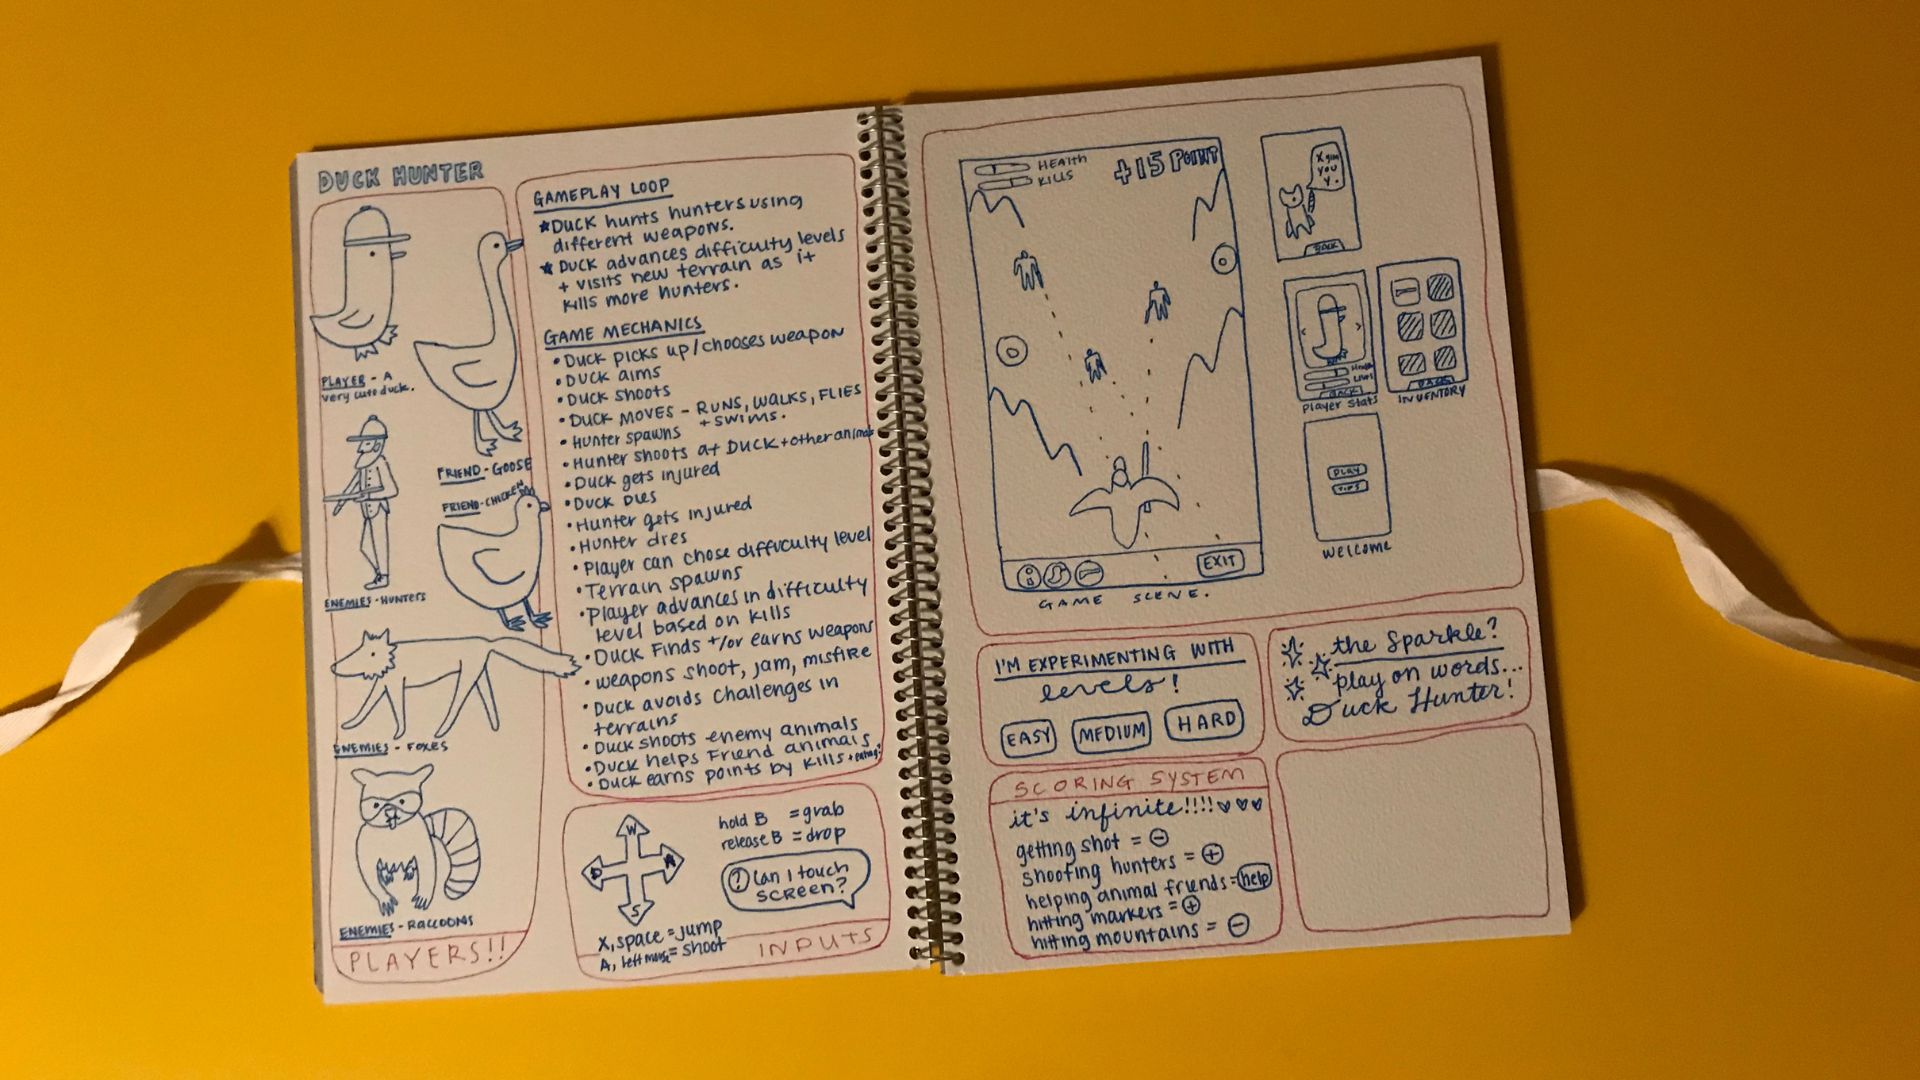 DUCK HUNTER
PLAYER - A
very cute duck.
FRIEND - GOOSE
FRIEND - CHICKEN
ENEMIES - HUNTERS
ENEMIES - FOXES
ENEMIES - RACCOONS
PLAYERS!!
GAMEPLAY LOOP
★ DUCK hunts hunters using
different weapons.
★ DUCK advances difficulty levels
+ visits new terrain as it
kills more hunters.
GAME MECHANICS
• DUCK picks up/chooses weapon
• DUCK aims
• DUCK shoots
• DUCK MOVES - RUNS, WALKS, FLIES
+ SWIMS.
• Hunter spawns
• Hunter shoots at DUCK + other animals
• DUCK gets injured
• DUCK DIES
• Hunter gets injured
• Hunter dies
• Player can chose difficulty level
• Terrain spawns
• Player advances in difficulty
level based on kills
• DUCK Finds +/or earns weapons
• weapons shoot, jam, misfire
• DUCK avoids challenges in
terrains
• DUCK shoots enemy animals
• DUCK helps Friend animals
• DUCK earns points by kills + eating?
W
D A
S
hold B = grab
release B = drop
! Can I touch
SCREEN?
X, space = jump
A, left mouse = shoot
INPUTS
HEALTH
KILLS
+15 POINT
EXIT
GAME SCENE.
X give
you
Y.
BACK
Health
Lives
BACK
Player Stats
BACK
INVENTORY
PLAY
TIPS
WELCOME
I'M EXPERIMENTING WITH
levels!
EASY MEDIUM HARD
the Sparkle?
play on words...
Duck Hunter!
SCORING SYSTEM
it's infinite!!!! ♡♡♡
getting shot = ⊖
shooting hunters = ⊕
helping animal friends = help
hitting markers = ⊕
hitting mountains = ⊖